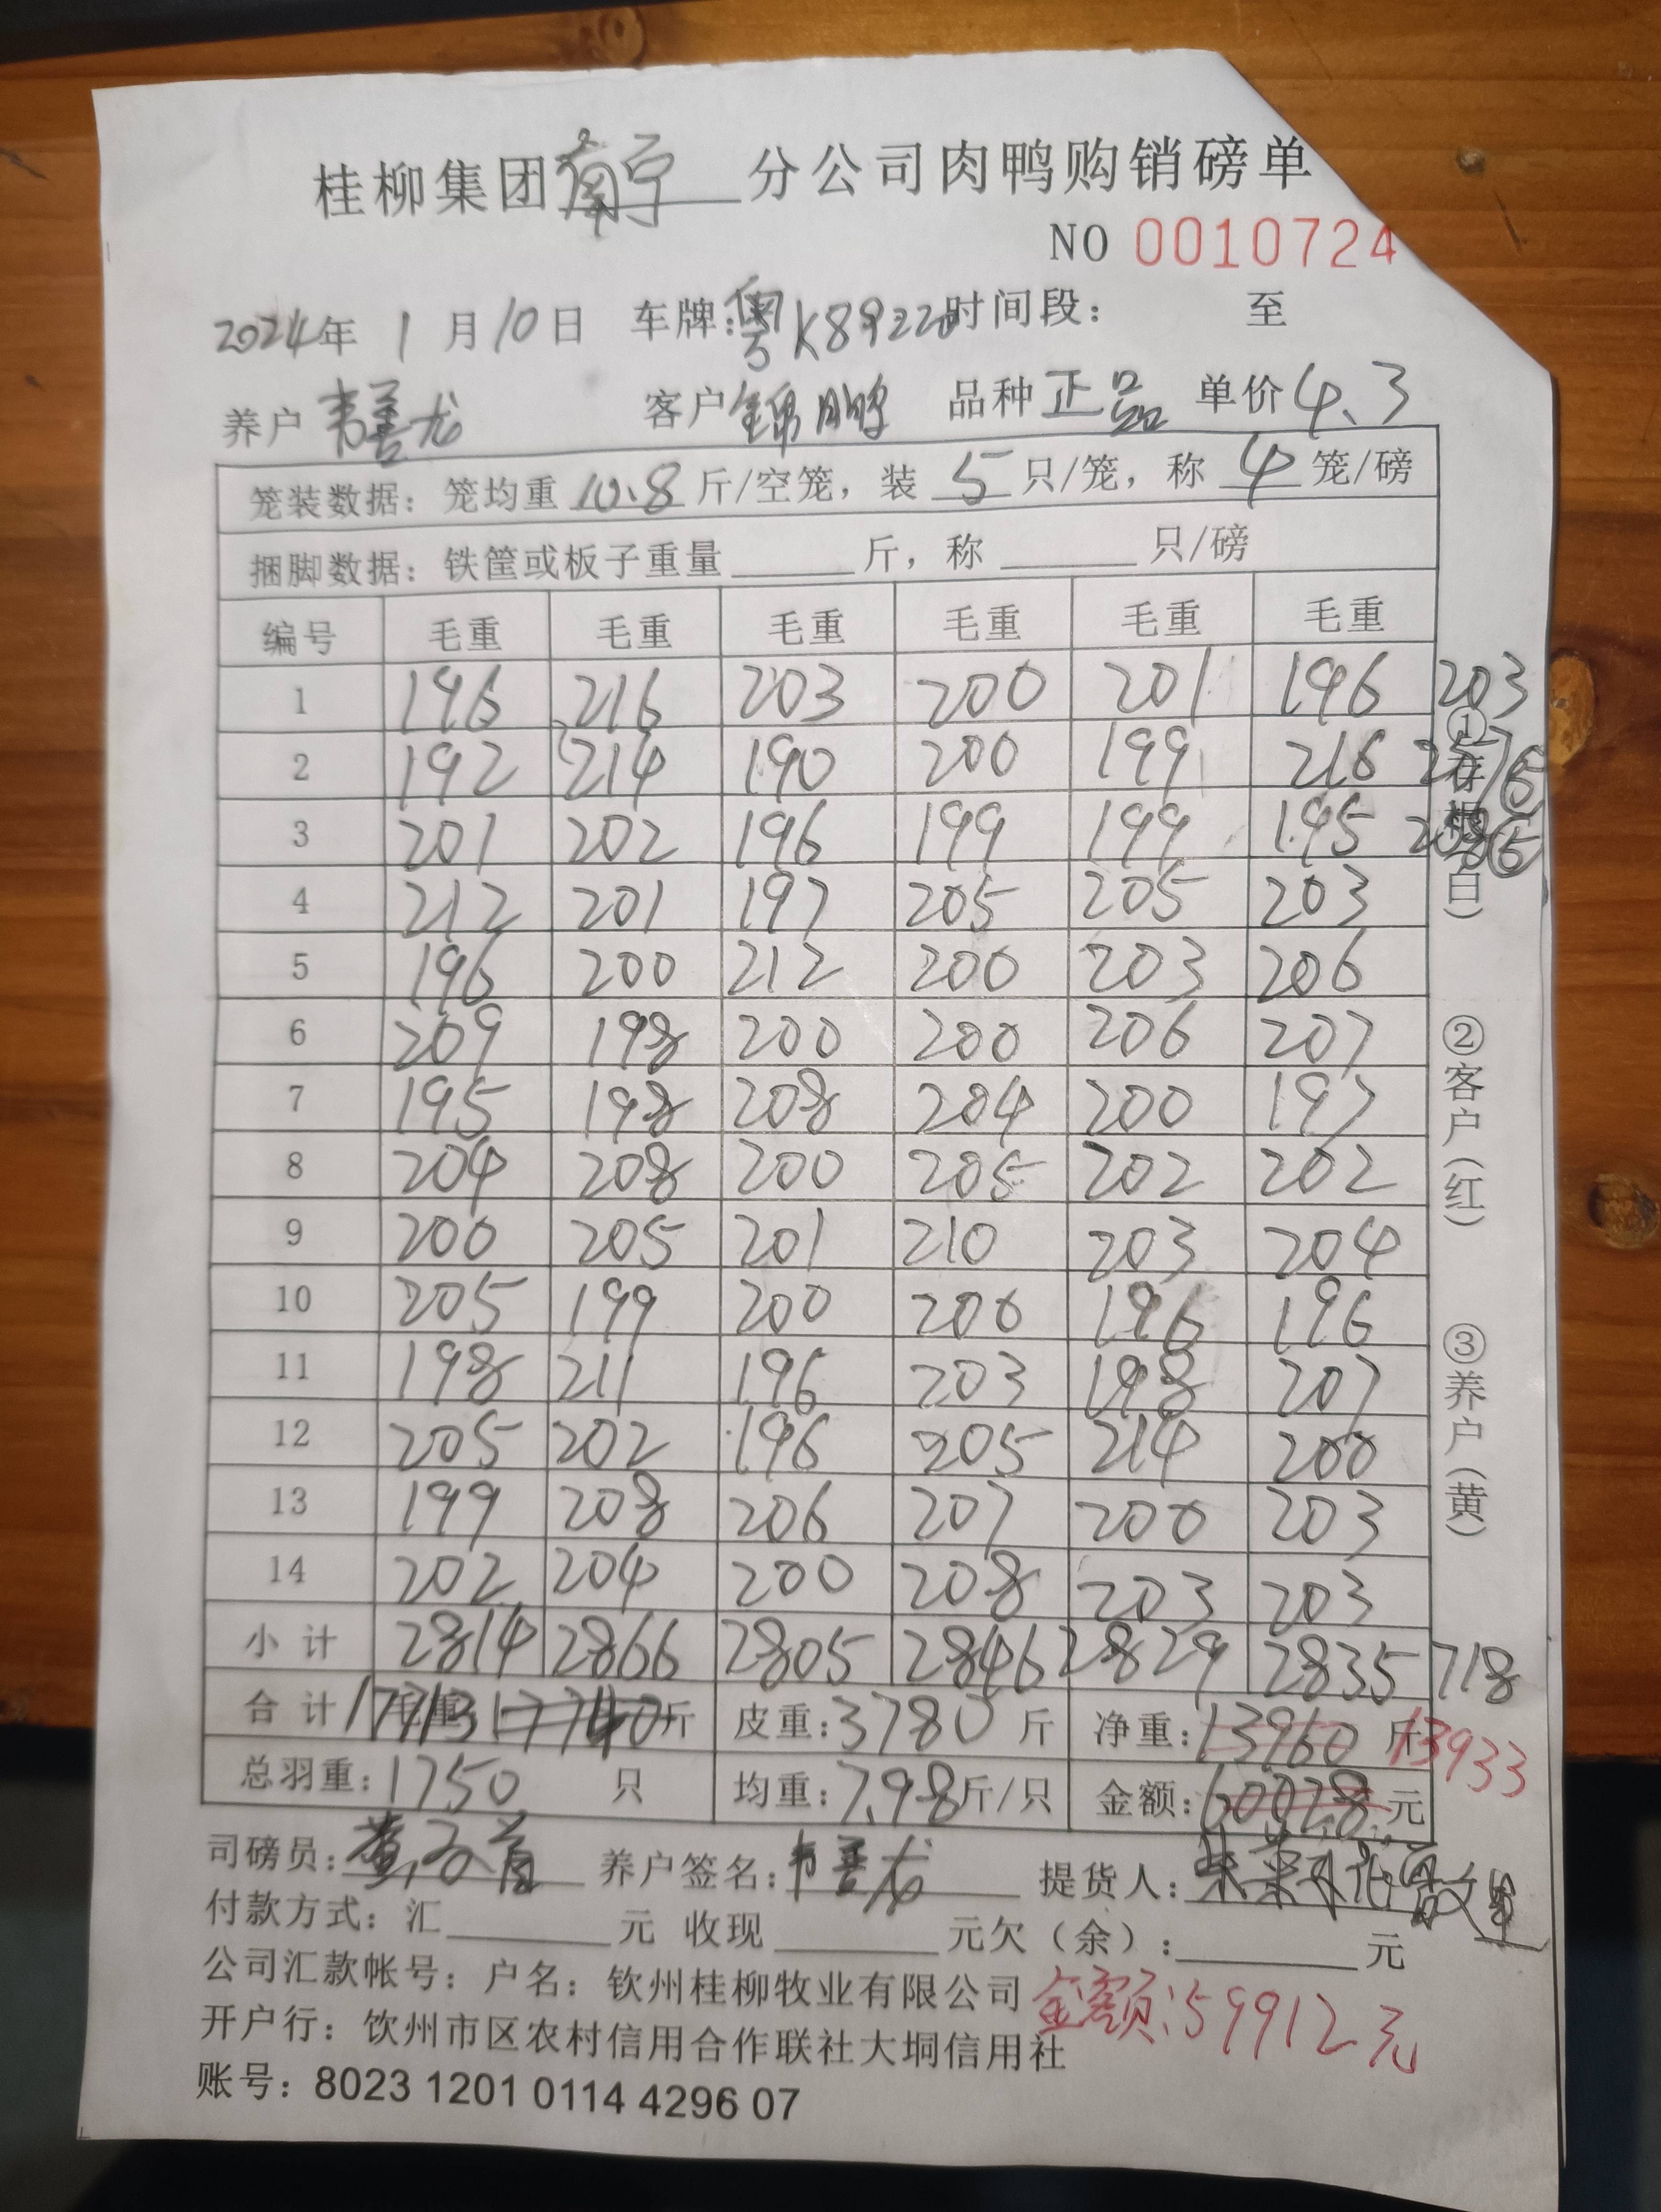 桂柳集团南宁分公司肉鸭购销磅单
NO 0010724
2024年 1月10日 车牌:粤K89220时间段: 至
养户 韦善龙 客户 锦鹏 品种 正品 单价 4.3
笼装数据: 笼均重 10.8 斤/空笼, 装 5 只/笼, 称 4 笼/磅
捆脚数据: 铁筐或板子重量 斤, 称 只/磅
编号 毛重 毛重 毛重 毛重 毛重 毛重
1 196 216 203 200 201 196 203
2 192 214 190 200 199 216
3 201 202 196 199 199 195
4 212 201 197 205 205 203
5 196 200 212 200 203 206
6 209 198 200 200 206 207
7 195 198 208 204 200 197
8 204 208 200 205 202 202
9 200 205 201 210 203 204
10 205 199 200 200 196 196
11 198 211 196 203 198 207
12 205 202 196 205 214 200
13 199 208 206 207 200 203
14 202 204 200 208 203 203
小计 2814 2866 2805 2846 2829 2835 718
合计 毛重: 17713 17740 斤 皮重: 3780 斤 净重: 13960 斤 13933
总羽重: 1750 只 均重: 7.98 斤/只 金额: 60028 元
司磅员: 养户签名: 韦善龙 提货人:
付款方式: 汇 元 收现 元欠(余): 元
公司汇款帐号: 户名: 钦州桂柳牧业有限公司
金额:59912元
开户行: 钦州市区农村信用合作联社大垌信用社
账号: 8023 1201 0114 4296 07
①存根(白)
②客户(红)
③养户(黄)